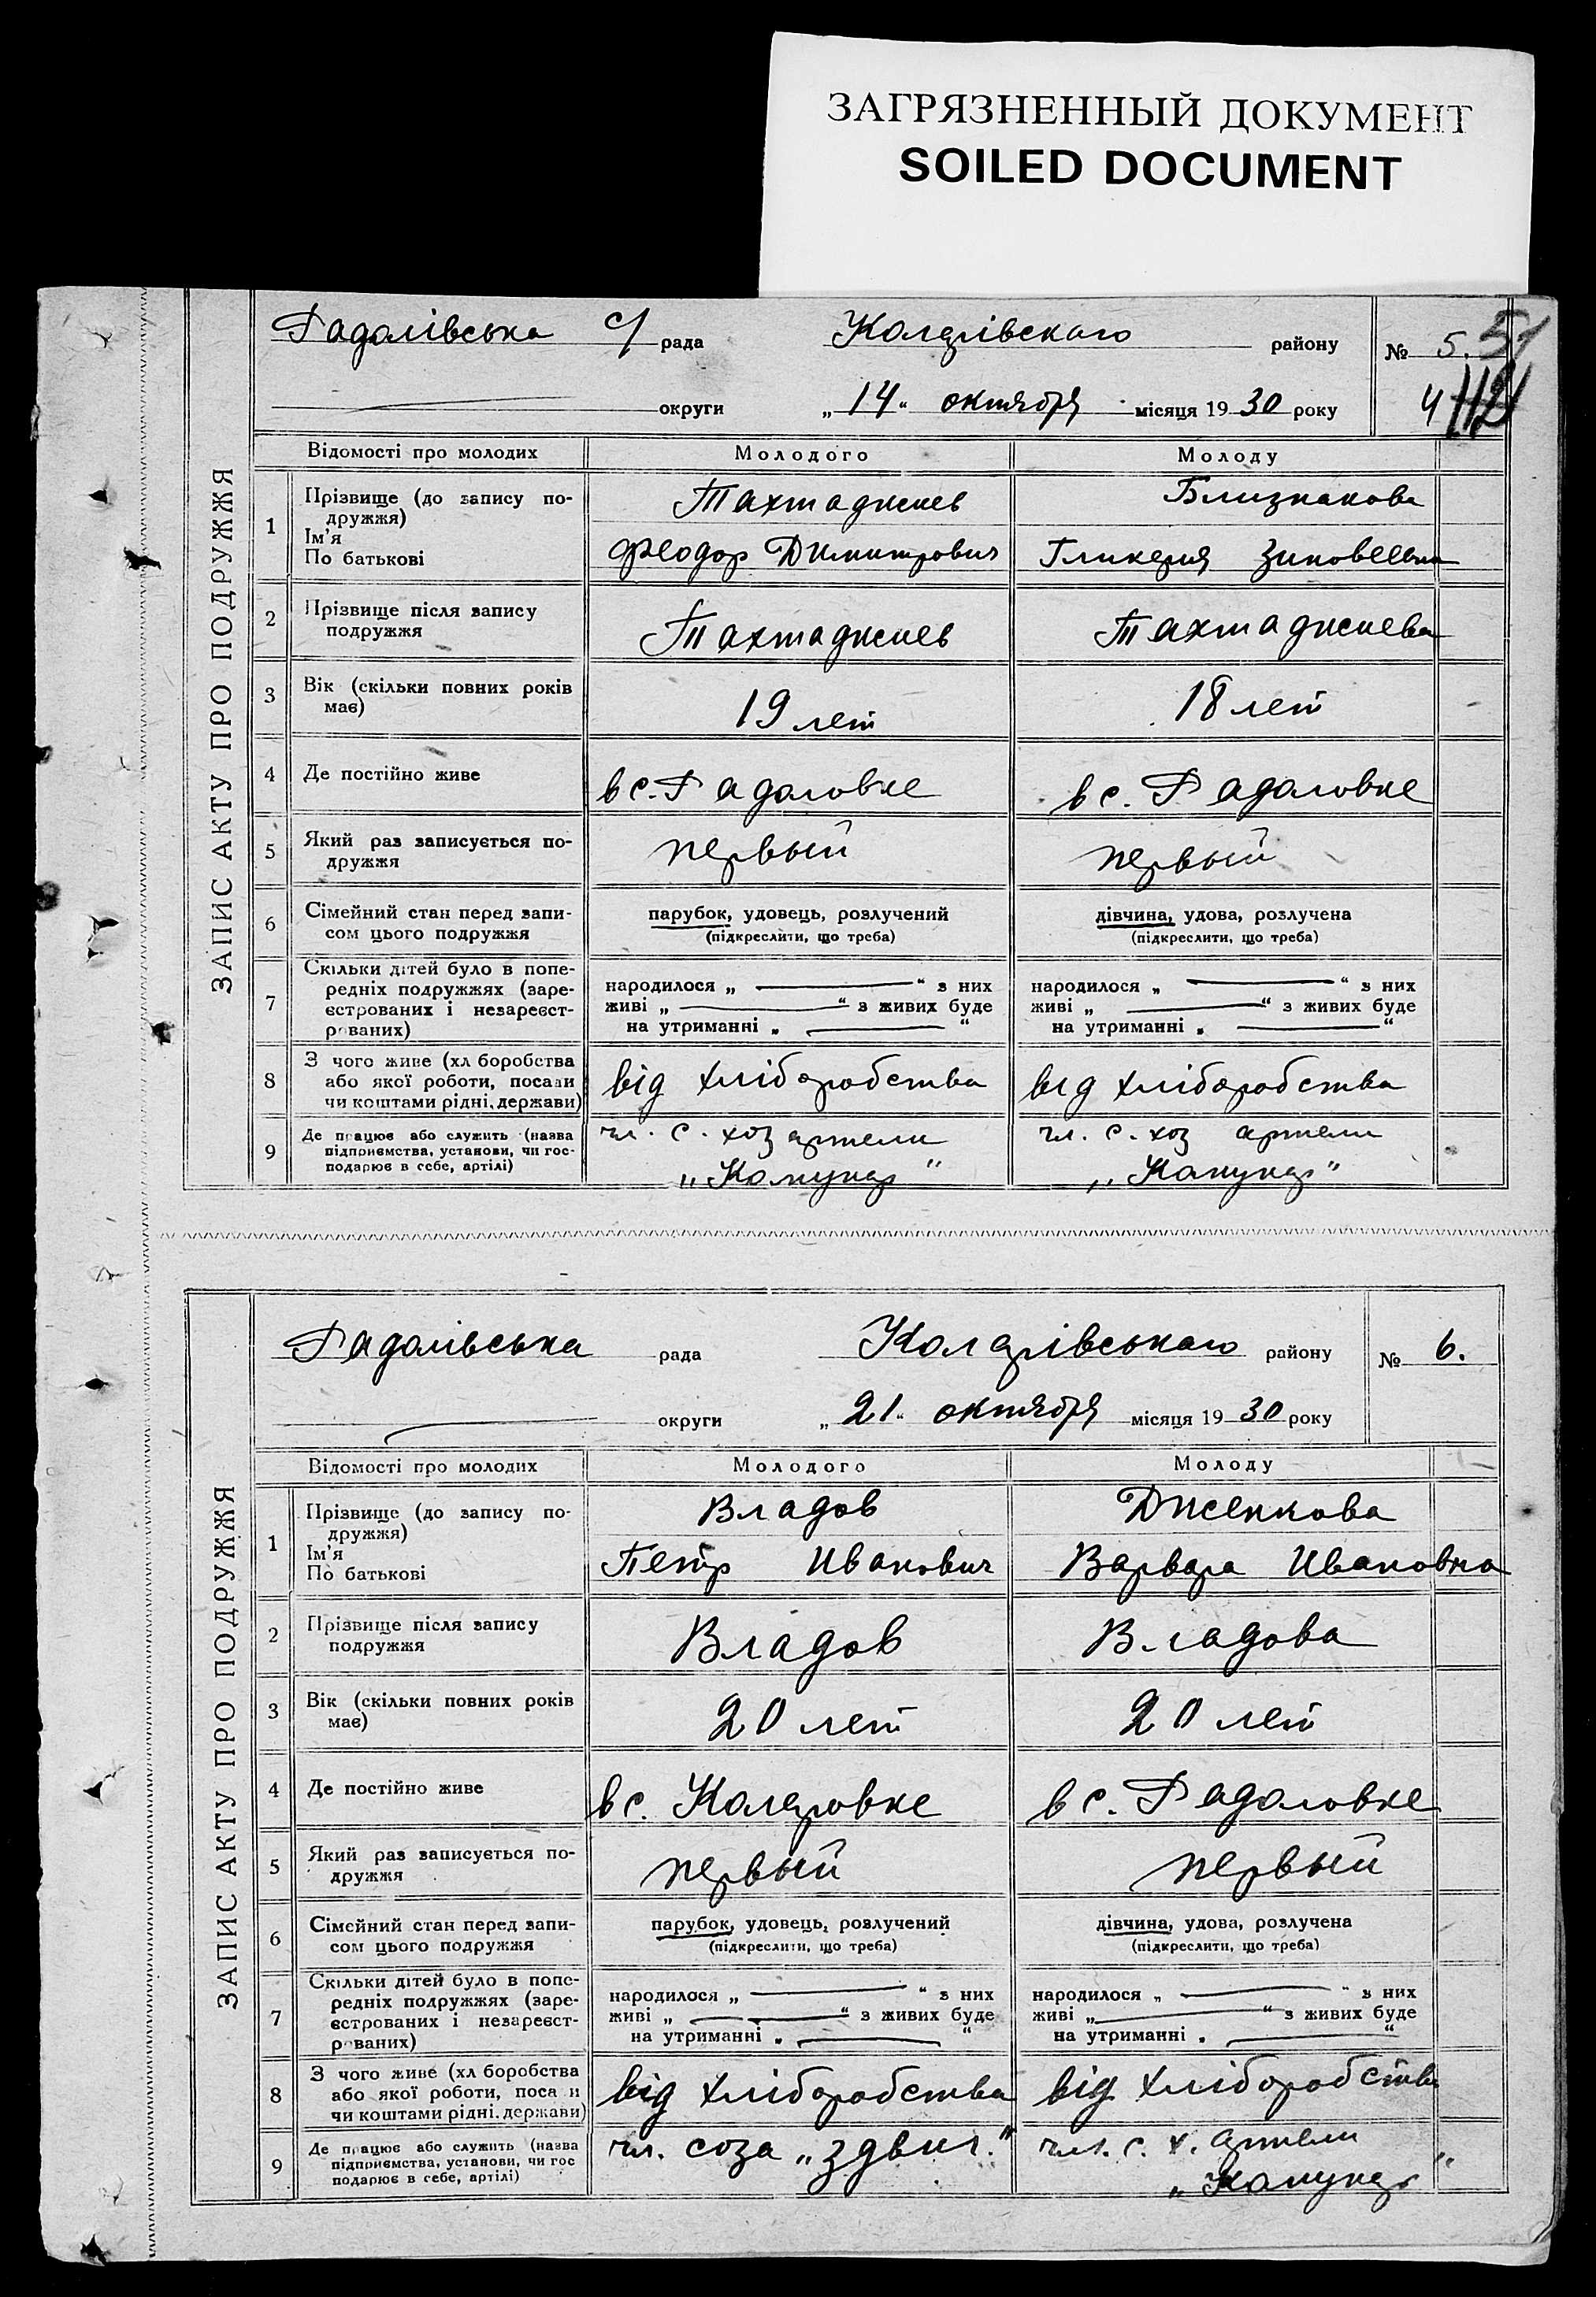 ЗАГРЯЗНЕННЫЙ ДОКУМЕНТ
SOILED DOCUMENT
ЗАПИС АКТУ ПРО ПОДРУЖЖЯ
Радолівська с/ рада Коларівскаго району № 5. 51
округи „14“ октября місяця 1930 року
Відомості про молодих Молодого Молоду
1 Прізвище (до запису по-
дружжя)
Ім’я
По батькові
Тахтаджиев Близнакова
Феодор Димитрович Гликерия Зиновеевна
2 Прізвище після запису
подружжя
Тахтаджиев Тахтаджиева
3 Вік (скільки повних років
має)
19 лет 18 лет
4 Де постійно живе в с. Радоловке в с. Радоловке
5 Який раз записується по-
дружжя
первый первый
6 Сімейний стан перед запи-
сом цього подружжя
парубок, удовець, розлучений дівчина, удова, розлучена
(підкреслити, що треба) (підкреслити, що треба)
7 Скільки дітей було в попе-
редніх подружжях (заре-
єстрованих і незареєст-
рованих)
народилося „ “ з них народилося „ “ з них
живі „ “ з живих буде живі „ “ з живих буде
на утриманні „ “ на утриманні „ “
8 З чого живе (хл боробства
або якої роботи, посади
чи коштами рідні, держави)
від хліборобства від хліборобства
9 Де працює або служить (назва
підприємства, установи, чи гос-
подарює в себе, артілі)
чл. с. хоз артели чл. с. хоз артели
ЗАПИС АКТУ ПРО ПОДРУЖЖЯ
Радолівська рада Коларівського району № 6.
округи „21“ октября місяця 1930 року
Відомості про молодих Молодого Молоду
1 Прізвище (до запису по-
дружжя)
Ім’я
По батькові
Владов Дженкова
Петр Иванович Варвара Ивановна
2 Прізвище після запису
подружжя
Владов Владова
3 Вік (скільки повних років
має)
20 лет 20 лет
4 Де постійно живе в с. Коларовке в с. Радоловке
5 Який раз записується по-
дружжя
первый первый
6 Сімейний стан перед запи-
сом цього подружжя
парубок, удовець, розлучений дівчина, удова, розлучена
(підкреслити, що треба) (підкреслити, що треба)
7 Скільки дітей було в попе-
редніх подружжях (заре-
єстрованих і незареєст-
рованих)
народилося „ “ з них народилося „ “ з них
живі „ “ з живих буде живі „ “ з живих буде
на утриманні „ “ на утриманні „ “
8 З чого живе (хл боробства
або якої роботи, поса и
чи коштами рідні, держави)
від хліборобства від хліборобства
9 Де працює або служить (назва
підприємства, установи, чи гос
подарює в себе, артілі)
чл. соза „здвиг.“ чл. с. х. артели